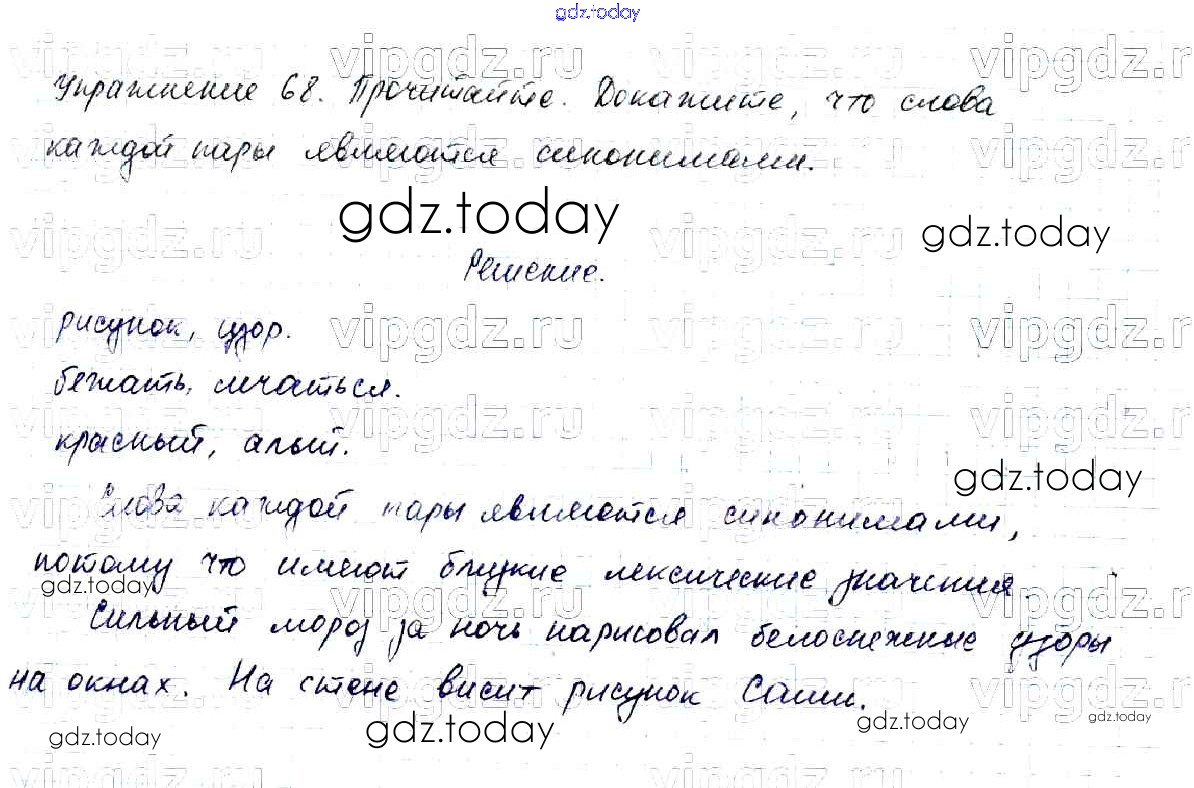 gdz.today
Упражнение 68. Прочитайте. Докажите, что слова
каждой пары являются синонимами.
gdz.today
gdz.today
Решение.
рисунок, узор.
бежать, мчаться.
красный, алый.
gdz.today
Слова каждой пары являются синонимами,
потому что имеют близкие лексические значения.
gdz.today
Сильный мороз за ночь нарисовал белоснежные узоры
на окнах. На стене висит рисунок Саши.
gdz.today
gdz.today
gdz.today
gdz.today
vipgdz.ru